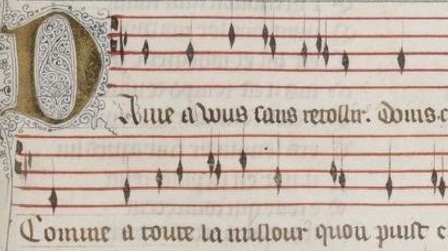 Dame a vous sans retollir. Doins c
Comme a toute la millour quon puist c